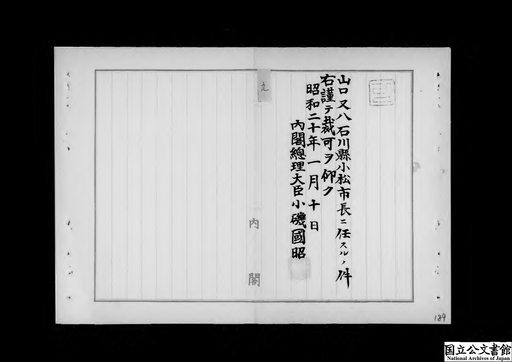 山口又八石川縣小松市長ニ任スルノ件
右謹テ裁可ヲ仰ク
昭和二十年一月十日
內閣總理大臣小磯國昭
內閣
189
国立公文書館
National Archives of Japan